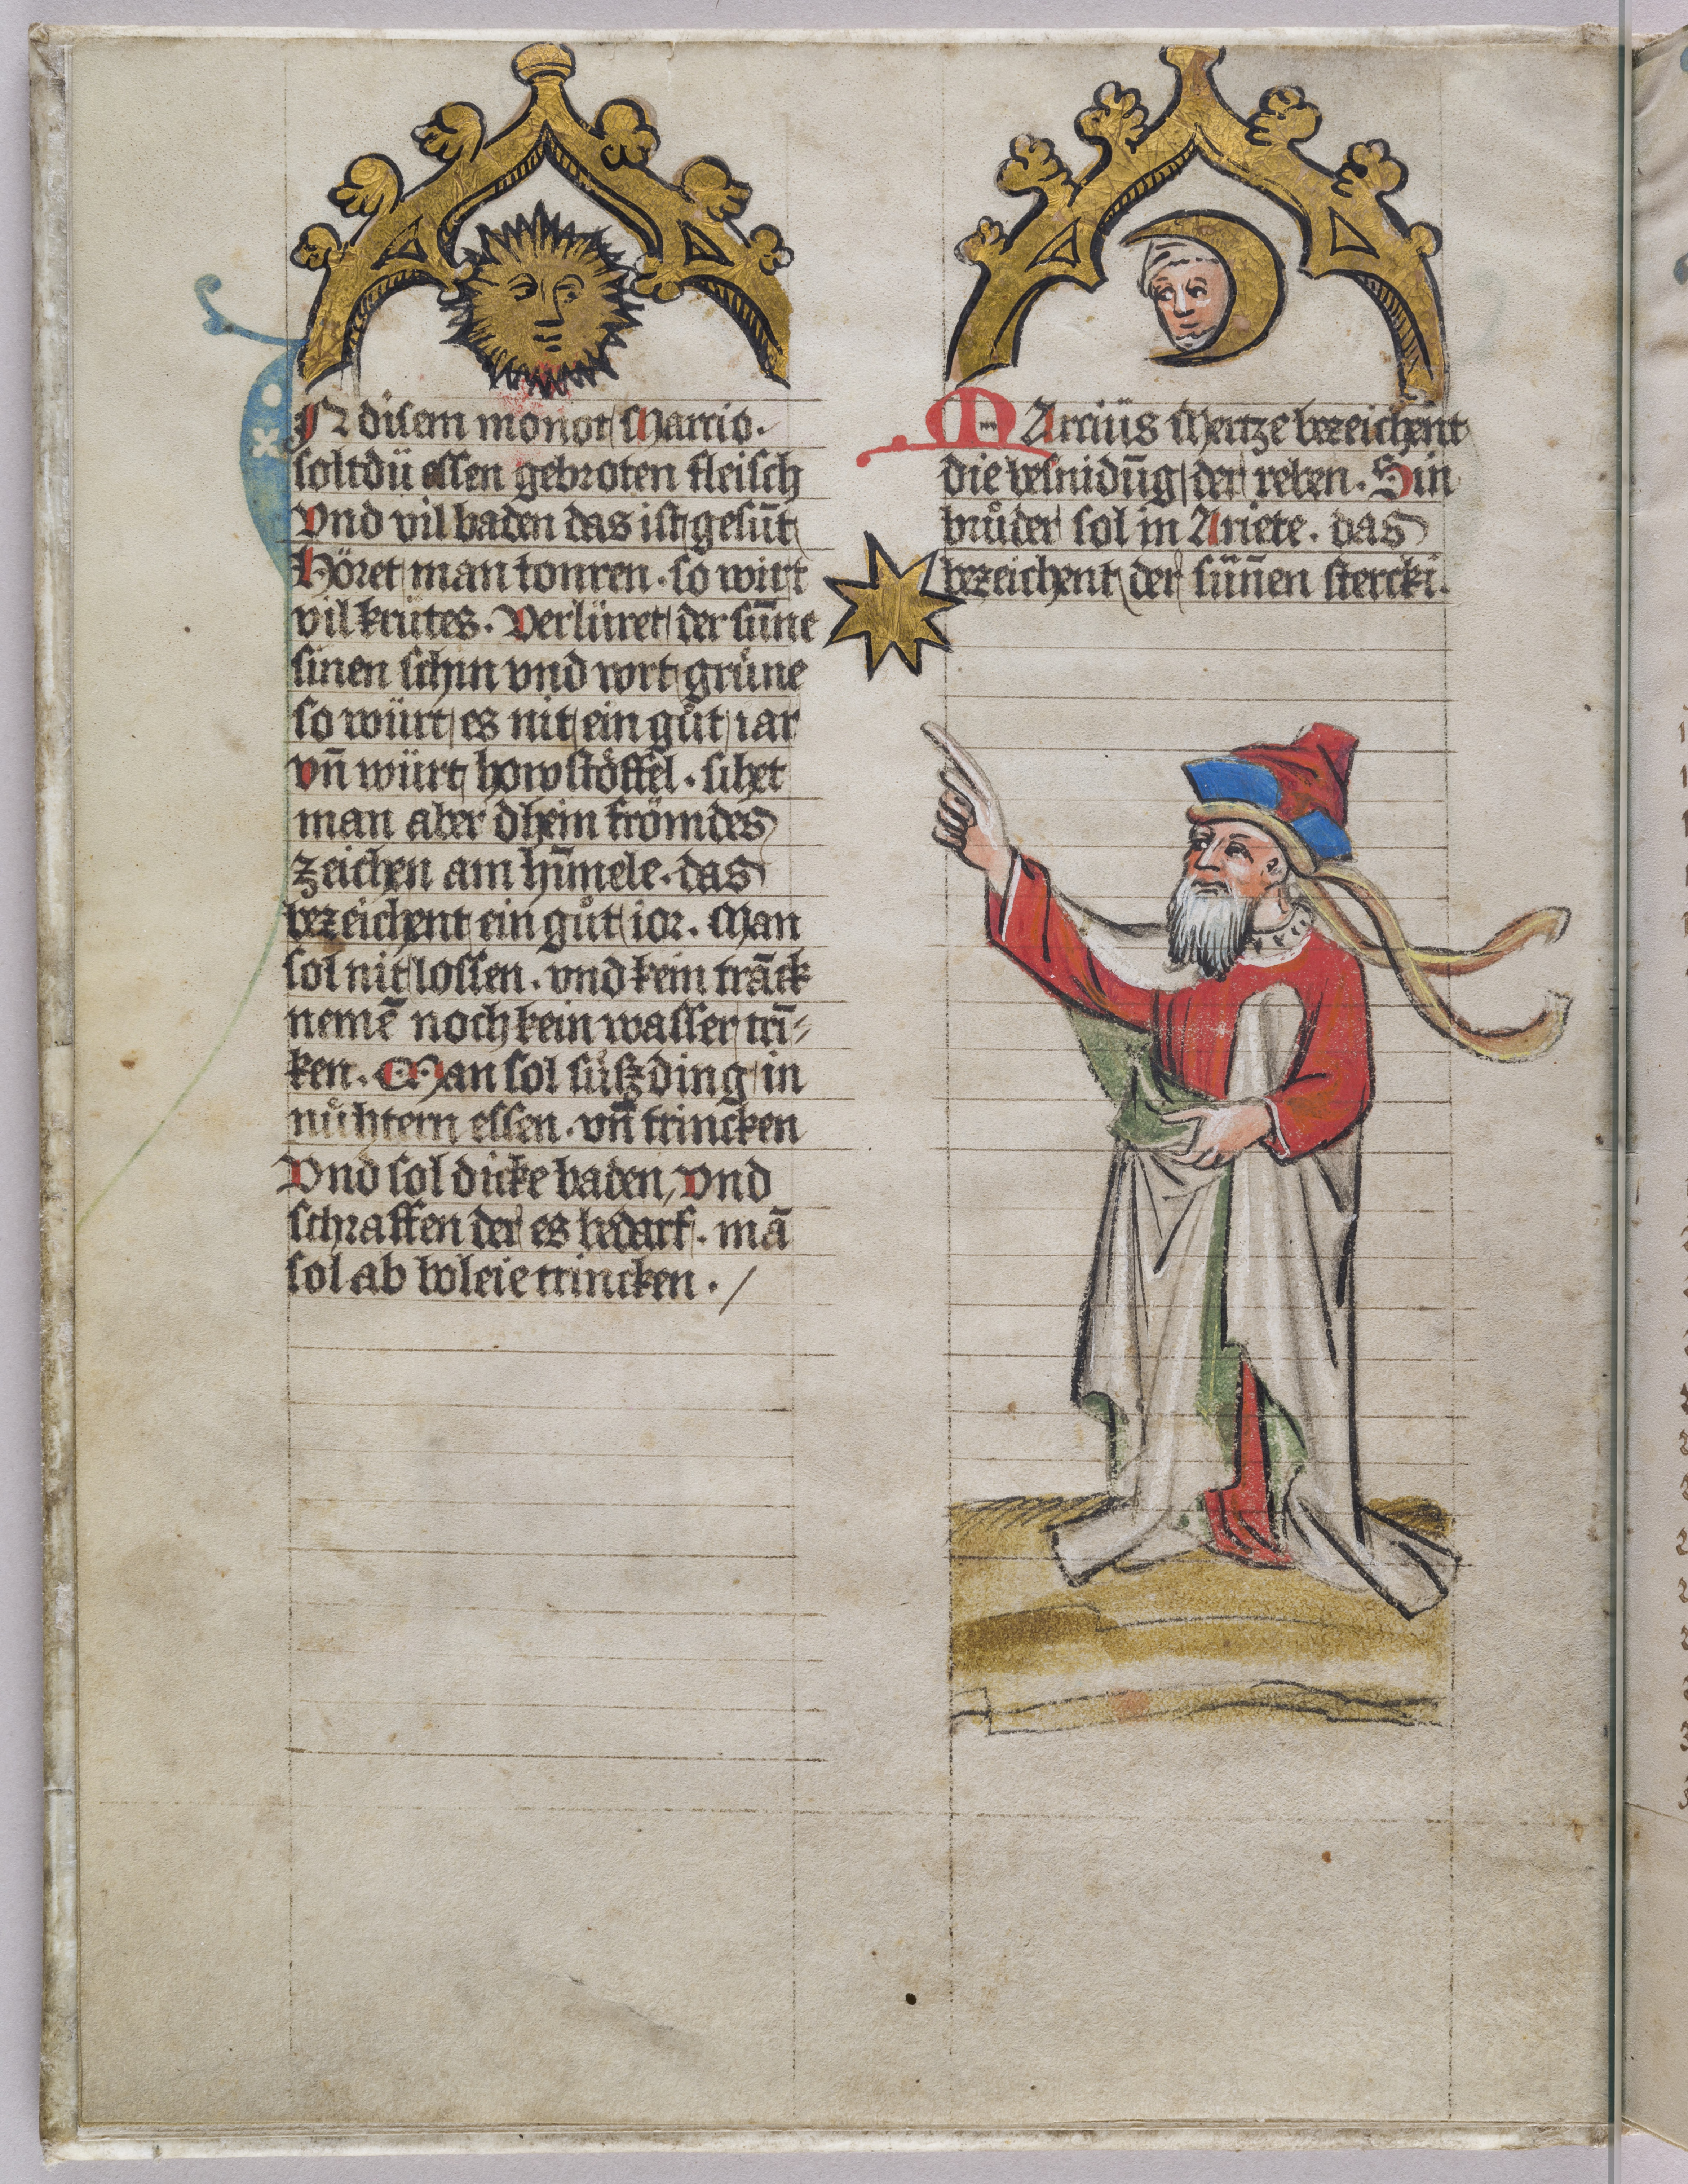 IN disem monot Marcio.
soltdü essen gebroten fleisch
Vnd vil baden das ist gesūt
Höret man tonren . so wirt
vil krütes . Verlüret der sūne
sinen schin vnd wrt grüne
so würt es nit ein gůt iar
vn̄ würt howstöffel . sihet
man aber dhein frömdes
zeichen am hīmele . das
bezeichent ein gůt ior . Man
sol nit lossen . vnd kein trāck
nemē noch kein wasser trī-
ken . Man sol süsz ding in
nůhtern essen . vn̄ trincken
Vnd sol dicke baden, vnd
schraffen der es bedarf . mā
sol ab bóleie trincken . /
MArcius Mertze bezeichent
die besnidūg der reben . Sin
brůder sol in Ariete . das
bezeichent der sūnen stercki .